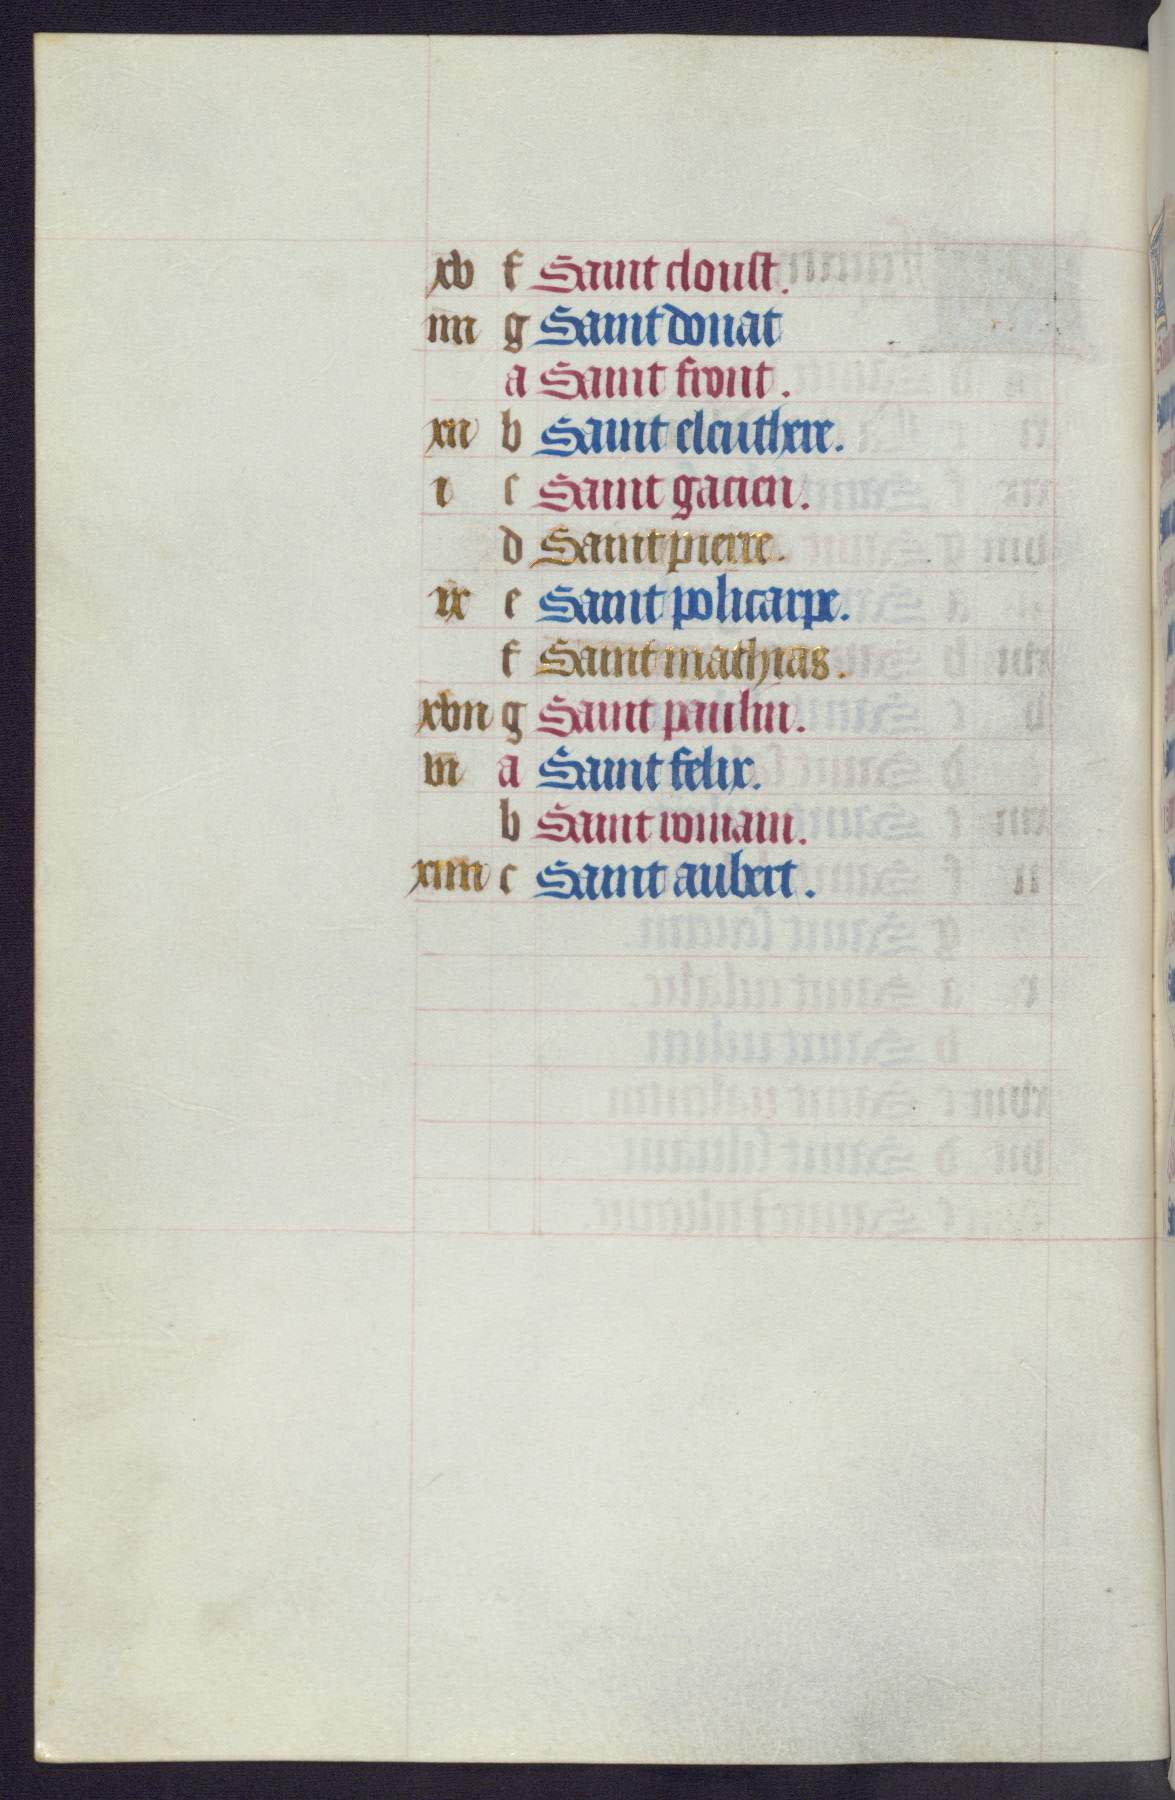 xv f Saint cloust.
iiii g Saint donat
a Saint front.
xii b Saint eleuthere.
i c Saint gacien.
d Saint pierre.
ix e Saint policarpe.
f Saint mathias.
xvii g Saint paulin.
vi a Saint felix.
b Saint romain.
xiiii c Saint aubert.